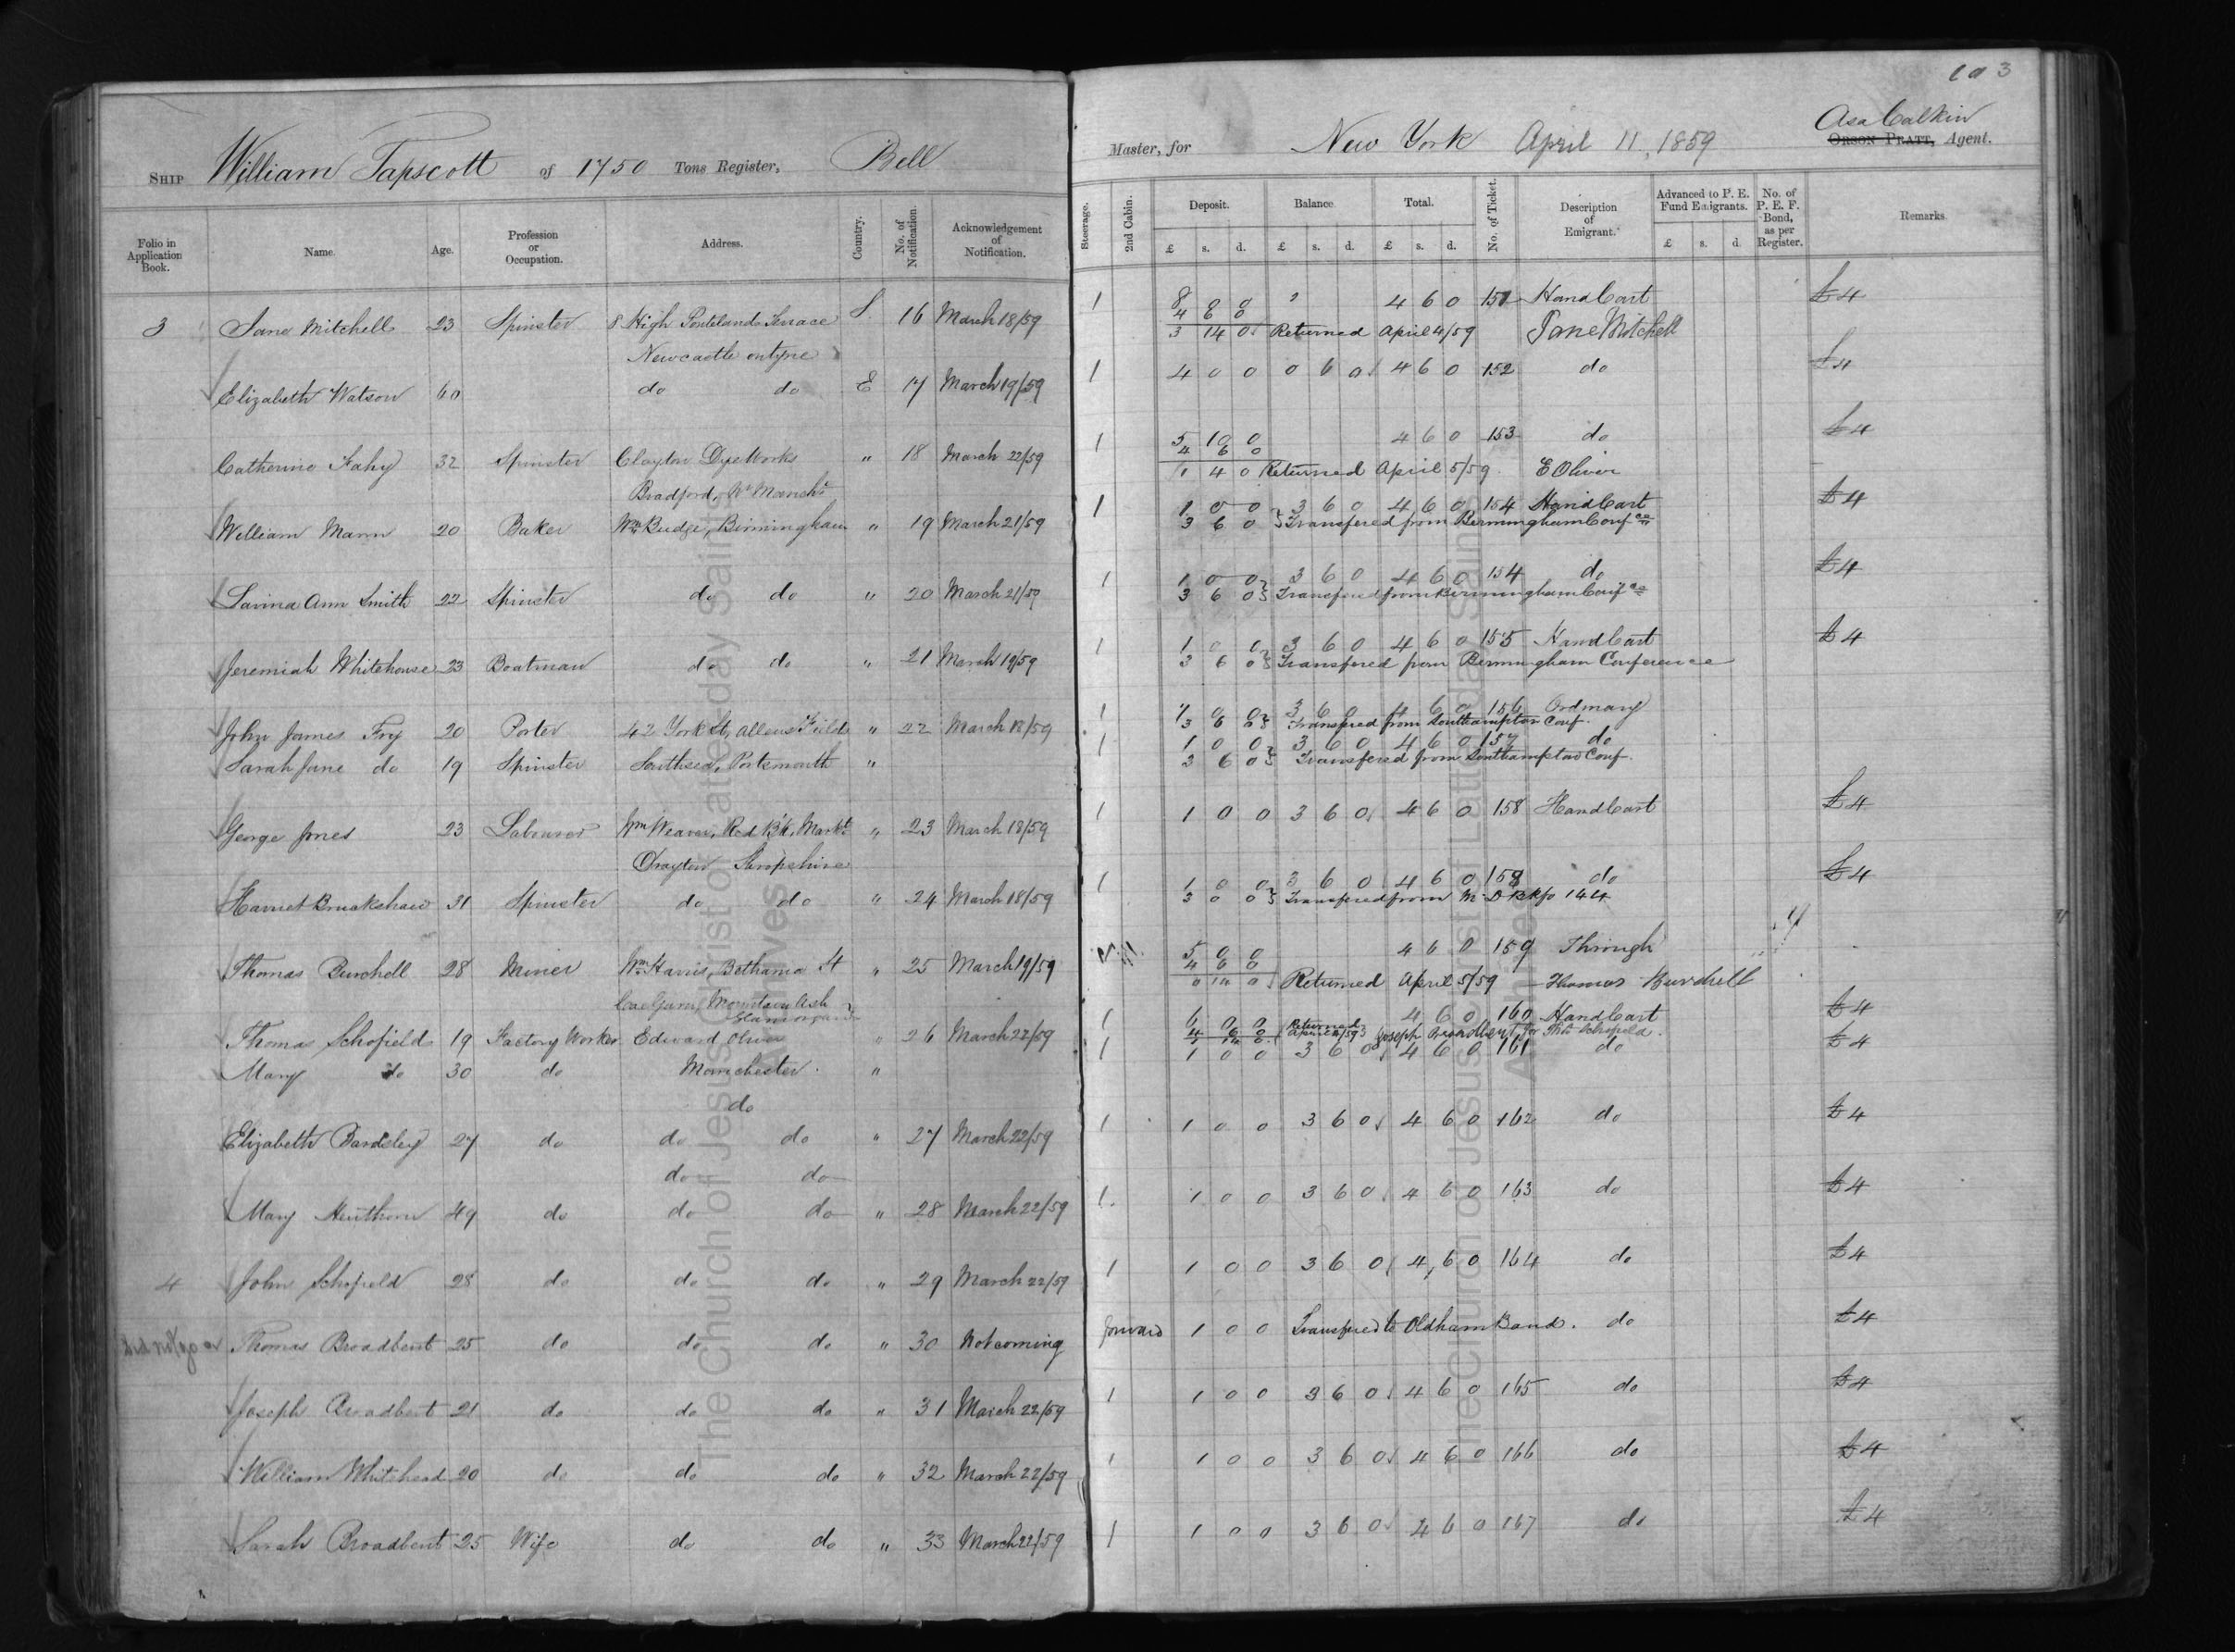 103
SHIP William Tapscott of 1750 Tons Register, Bell Master, for New York April 11, 1859 Asa Calkin
ORSON PRATT, Agent.
Folio in Application Book. Name. Age. Profession or Occupation. Address. Country. No. of Notification. Acknowledgement of Notification. Steerage. 2nd Cabin. Deposit. £ s. d. Balance £ s. d. Total. £ s. d. No. of Ticket. Description of Emigrant. Advanced to P. E. Fund Emigrants. £ s. d No. of P. E. F. Bond, as per Register. Remarks
3 Jane Mitchell 23 Spinster 8 High Pontelands Terrace S. 16 March 18/59 1 8 0 0 4 6 0 151 HandCart £4
4 6 0
Newcastle on tyne 3 14 0 Returned April 4/59 Jane Mitchell
Elizabeth Watson 60 do do E 17 March 19/59 1 4 0 0 0 6 0 4 6 0 152 do £4
Catherine Fahy 32 Spinster Clayton Dye Works " 18 March 22/59 1 5 10 0 4 6 0 153 do £4
4 6 0
Bradford, Nr Manchr 1 4 0 Returned April 5/59 E Oliver
William Mann 20 Baker Wm Budge, Birmingham " 19 March 21/59 1 1 0 0 3 6 0 4 6 0 154 HandCart £4
3 6 0 Transfered from Birmingham Confce
Lavina Ann Smith 22 Spinster do do " 20 March 21/59 1 1 0 0 3 6 0 4 6 0 154 do £4
3 6 0 Transfered from Birmingham Confce
Jeremiah Whitehouse 23 Boatman do do " 21 March 19/59 1 1 0 0 3 6 0 4 6 0 155 HandCart £4
3 6 0 Transfered from Birmingham Conference
John James Fry 20 Porter 42 York St, Allens Field " 22 March 18/59 1 1 0 0 3 6 0 4 6 0 156 Ordinary
3 6 0 Transfered from Southampton Conf.
Sarah Jane do 19 Spinster Southsea, Portsmouth " 1 1 0 0 3 6 0 4 6 0 157 do
3 6 0 Transfered from Southampton Conf.
George Jones 23 Labourer Wm Weaver, Red Bk, Markt " 23 March 18/59 1 1 0 0 3 6 0 4 6 0 158 HandCart £4
Drayton Shropshire
Harriet Bruckshaw 31 Spinster do do " 24 March 18/59 1 1 0 0 3 6 0 4 6 0 158 do £4
3 0 0 Transfered from M. D Bk fo 144
Thomas Burchell 28 Miner Wm Harris, Bethania St " 25 March 19/59 5 0 0 4 6 0 159 Through
4 6 0
0 14 0 Returned April 5/59 Thomas Burchell
Mountain Ash
Glamorgan
Thomas Schofield 19 Factory Worker Edward Oliver " 26 March 22/59 1 6 0 0 4 6 0 160 HandCart £4
4 6 0 Returned April 11/59 Joseph Broadbent for Thos Schofield.
Mary do 30 do Manchester. " 1 1 0 0 3 6 0 4 6 0 161 do £4
do
Elizabeth Bardsley 27 do do do " 27 March 22/59 1 1 0 0 3 6 0 4 6 0 162 do £4
do do
Mary Henthorn 49 do do do " 28 March 22/59 1 1 0 0 3 6 0 4 6 0 163 do £4
4 John Schofield 28 do do do " 29 March 22/59 1 1 0 0 3 6 0 4 6 0 164 do £4
Thomas Broadbent 25 do do do " 30 Not coming forward 1 0 0 Transfered to Oldham Band. do £4
Joseph Broadbent 21 do do do " 31 March 22/59 1 1 0 0 3 6 0 4 6 0 165 do £4
William Whitehead 20 do do do " 32 March 22/59 1 1 0 0 3 6 0 4 6 0 166 do £4
Sarah Broadbent 25 Wife do do " 33 March 22/59 1 1 0 0 3 6 0 4 6 0 167 do £4
The Church of Jesus Christ of Latter-day Saints
Archives
The Church of Jesus Christ of Latter-day Saints
Archives